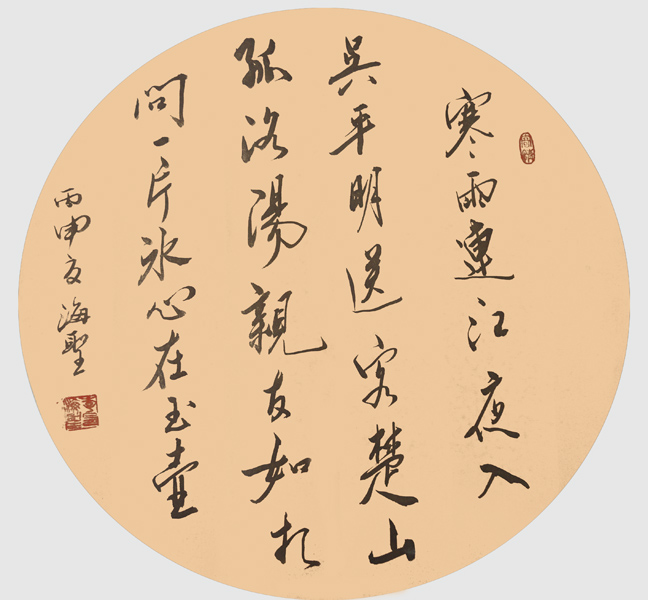 寒雨連江夜入
吳平明送客楚山
孤洛陽親友如相
問一片冰心在玉壺
丙申夏海聖